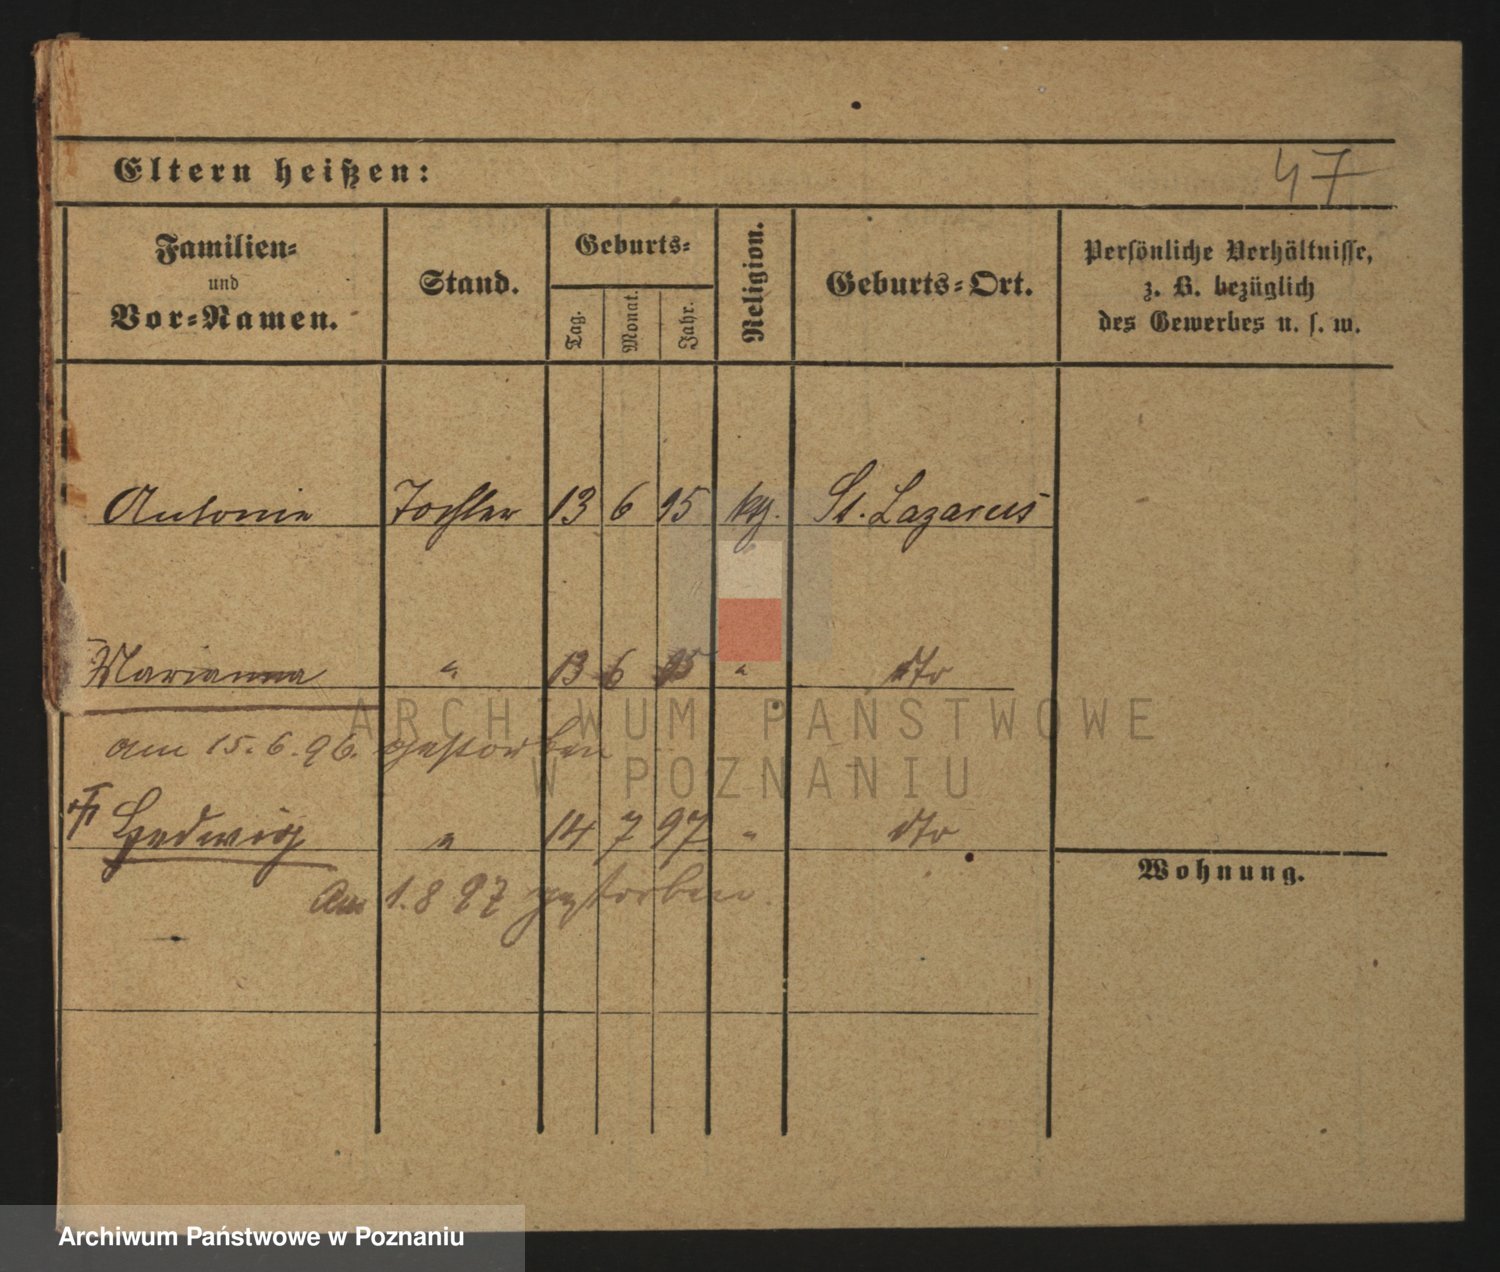 Eltern heißen:
47
Familien-
und
Vor-Namen.
Stand.
Geburts-
Tag.
Monat.
Jahr.
Religion.
Geburts-Ort.
Persönliche Verhältnisse,
z. B. bezüglich
des Gewerbes u. s. w.
Antonie Tochter 13 6 95 kth. St. Lazarus
Marianna " 13 6 95 " dto
am 15.6.96. gestorben
Hedwig " 14 7 97 " dto
Am 1.8 97 gestorben.
Wohnung.
ARCHIWUM PAŃSTWOWE
W POZNANIU
Archiwum Państwowe w Poznaniu